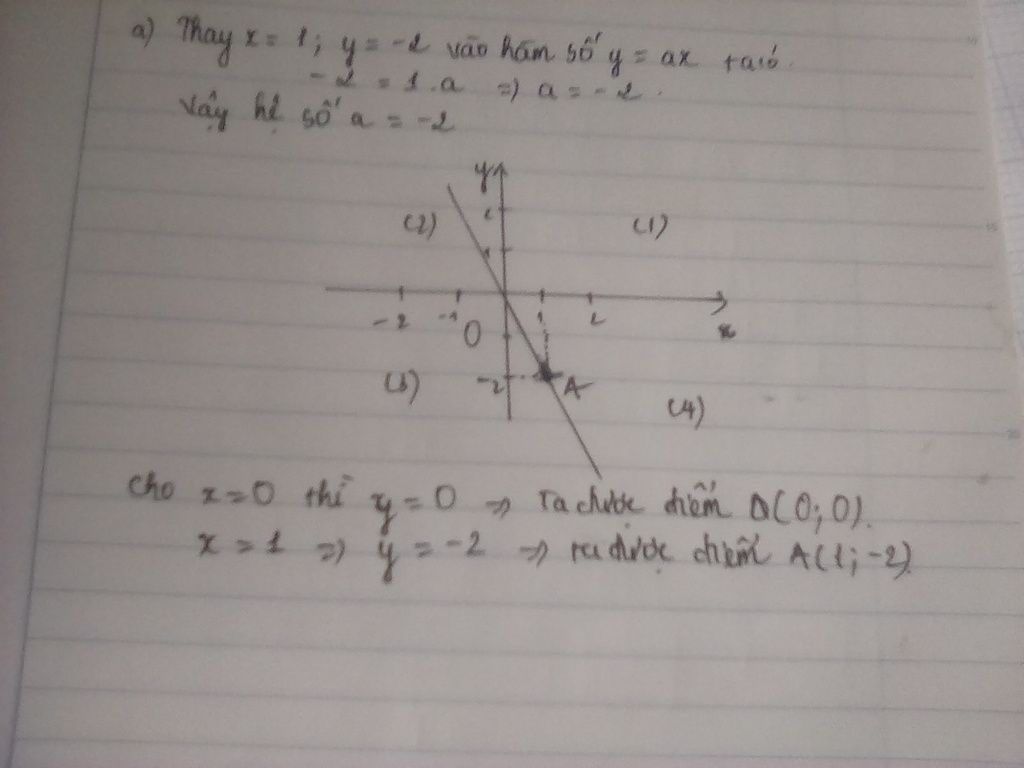 a) Thay x = 1; y = -2 vào hàm số y = ax ta có.
-2 = 1.a => a = -2.
Vậy hệ số a = -2
y
(2) 2 (1)
1
-2 -1 O 1 2 x
(3) -2 A (4)
Cho x = 0 thì y = 0 => ta được điểm O(0; 0).
x = 1 => y = -2 => ta được điểm A(1; -2).